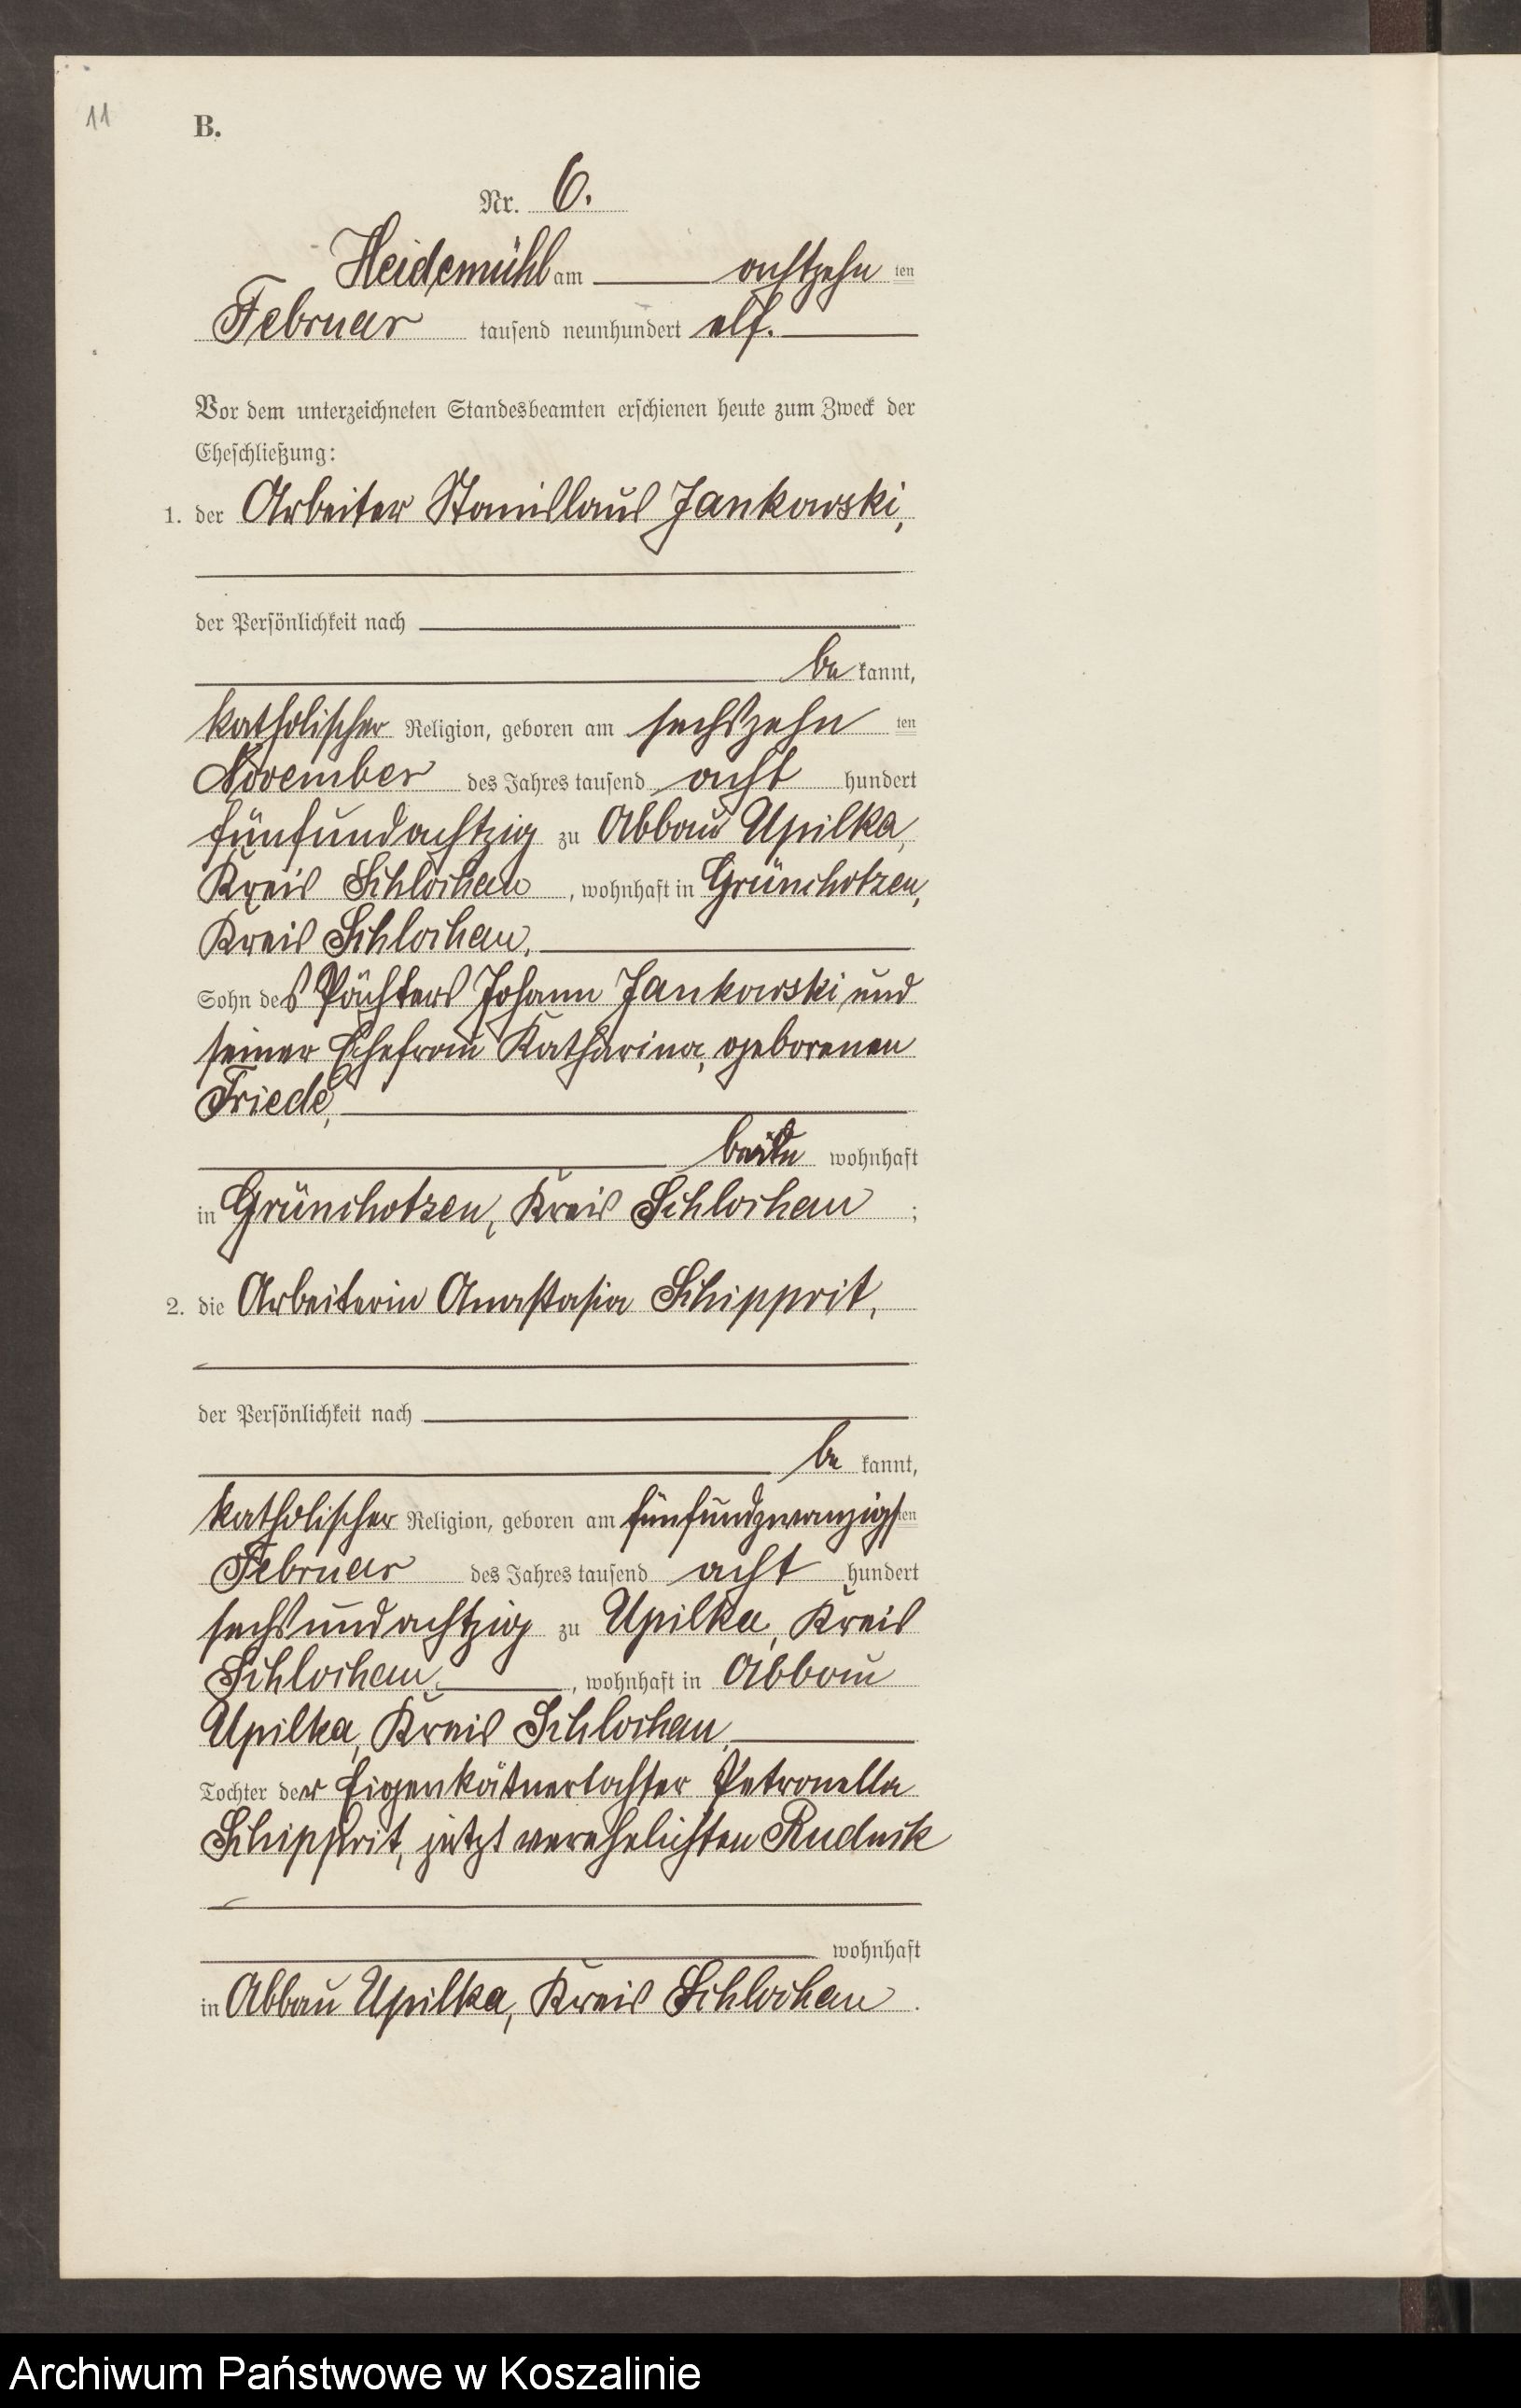 11
B.
Nr. 6.
Heidemühl am achtzehn ten
Februar tausend neunhundert elf.
Vor dem unterzeichneten Standesbeamten erschienen heute zum Zweck der
Eheschließung:
1. der Arbeiter Stanislaus Jankowski,
der Persönlichkeit nach
be kannt,
katholischer Religion, geboren am sechszehn ten
November des Jahres tausend acht hundert
fünfundachtzig zu Abbau Upilka,
Kreis Schlochau, wohnhaft in Grünchotzen,
Kreis Schlochau,
Sohn des Pächters Johann Jankowski und
seiner Ehefrau Katharina, geborenen
Friede,
beide wohnhaft
in Grünchotzen, Kreis Schlochau;
2. die Arbeiterin Anastasia Schipprit,
der Persönlichkeit nach
be kannt,
katholischer Religion, geboren am fünfundzwanzigsten
Februar des Jahres tausend acht hundert
sechsundachtzig zu Upilka, Kreis
Schlochau, wohnhaft in Abbau
Upilka, Kreis Schlochau,
Tochter der Eigenkätnertochter Petronella
Schipprit, jetzt verehelichten Rudnik
wohnhaft
in Abbau Upilka, Kreis Schlochau.
Archiwum Państwowe w Koszalinie